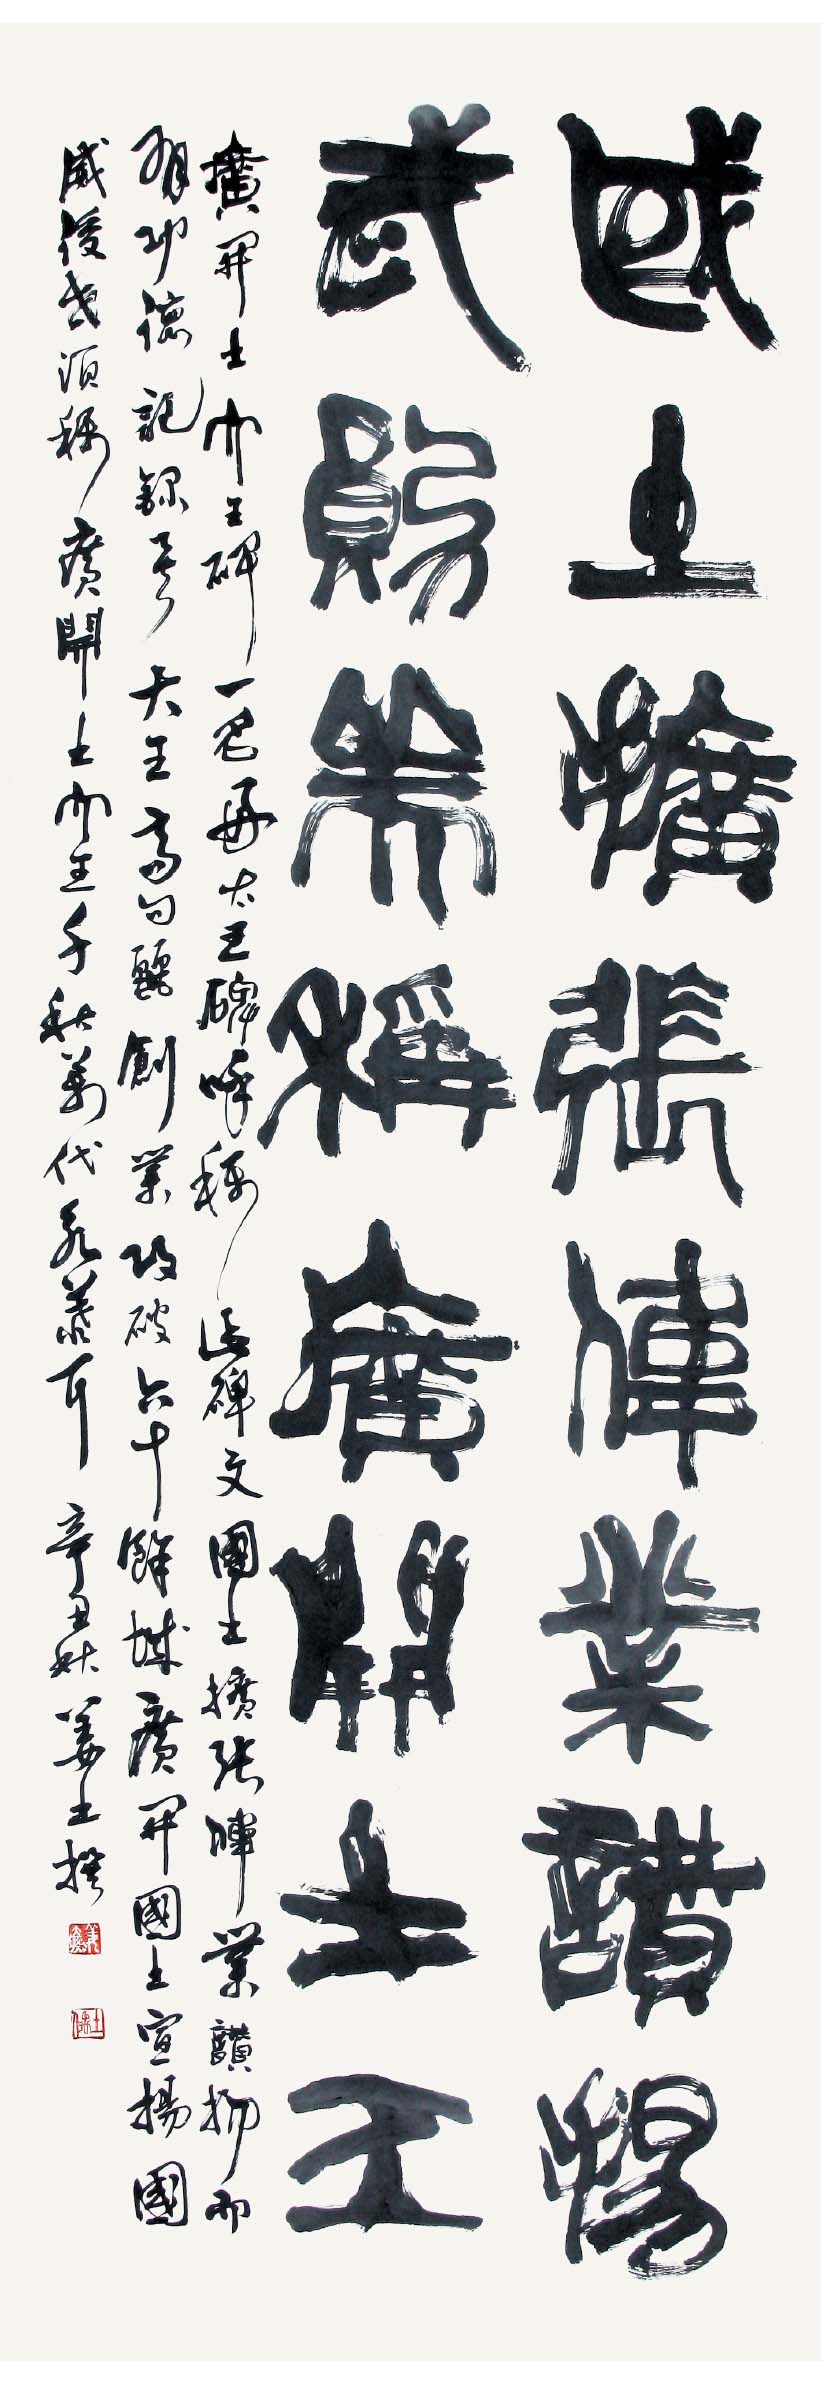 國土擴張偉業讚揚
武勛崇稱廣開土王
廣開土王碑一名 大王碑 稱 碑文 國土擴張偉業讚揚
有功德記錄 大王高句麗創業攻破六十餘城廣開國土宣揚國
威後世頌稱廣開土王千秋萬代永慕耳 辛丑秋 姜土